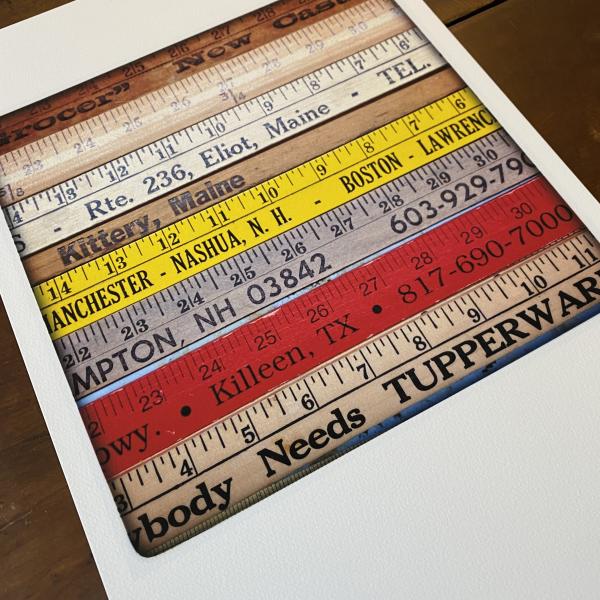 Grocer" New Cast
25 26 28
23 24 25 26 27 28 29 30
13 12 11 10 9 8 7 6
- Rte. 236, Eliot, Maine - TEL.
Kittery, Maine
14 13 12 11 10 9 8 7 6
MANCHESTER - NASHUA, N. H. - BOSTON - LAWRENC
22 23 24 25 26 27 28 29 30
MPTON, NH 03842 603-929-790
23 24 25 26 27 28 29 30
owy. • Killeen, TX • 817-690-7000
3 4 5 6 7 8 9 10 11
ybody Needs TUPPERWAR